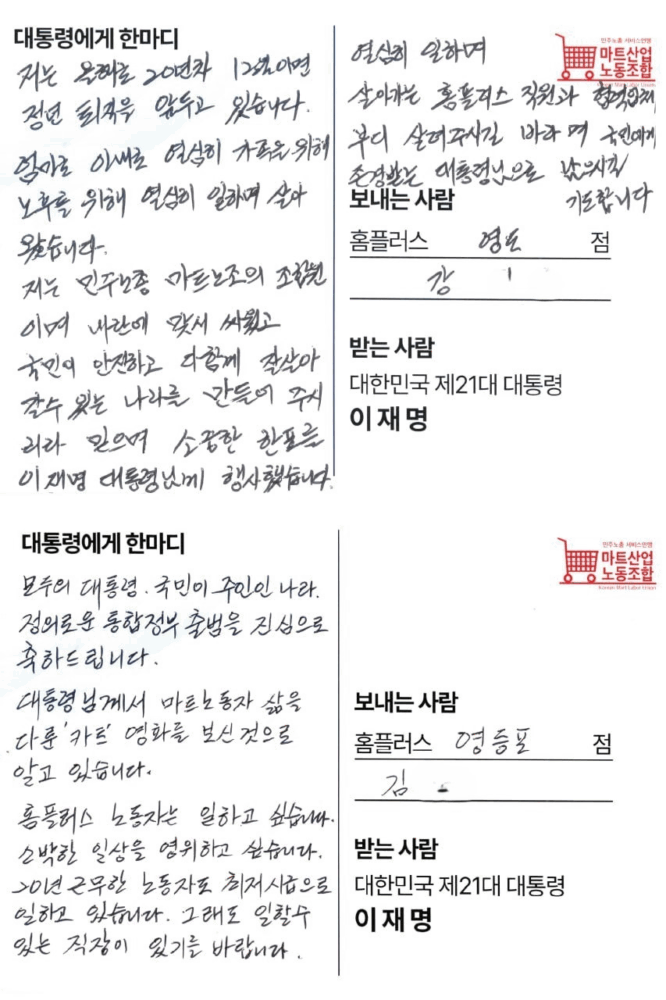 대통령에게 한마디
저는 올해로 20년차 12월이면
정년 퇴직을 앞두고 있습니다.
엄마로 아내로 열심히 가족을 위해
노후를 위해 열심히 일하며 살아
왔습니다.
저는 민주노총 마트노조의 조합원
이며 내란에 맞서 싸웠고
국민이 안전하고 다함께 잘살아
갈수 있는 나라를 만들어 주시
리라 믿으며 소중한 한표를
이재명 대통령님께 행사했습니다.
열심히 일하며
살아가는 홈플러스 직원과 협력업체
부디 살려주시길 바라며 국민에게
존경받는 대통령님으로 남으시길
기도합니다
민주노총 서비스연맹
마트산업
노동조합
보내는 사람
홈플러스 영도 점
강
받는 사람
대한민국 제21대 대통령
이 재 명
대통령에게 한마디
모두의 대통령. 국민이 주인인 나라.
정의로운 통합정부 출범을 진심으로
축하드립니다.
대통령님께서 마트노동자 삶을
다룬 '카트' 영화를 보신것으로
알고 있습니다.
홈플러스 노동자는 일하고 싶습니다.
소박한 일상을 영위하고 싶습니다.
20년 근무한 노동자도 최저시급으로
일하고 있습니다. 그래도 일할수
있는 직장이 있기를 바랍니다.
민주노총 서비스연맹
마트산업
노동조합
Korean Mart Labor Union
보내는 사람
홈플러스 영등포 점
김
받는 사람
대한민국 제21대 대통령
이 재 명